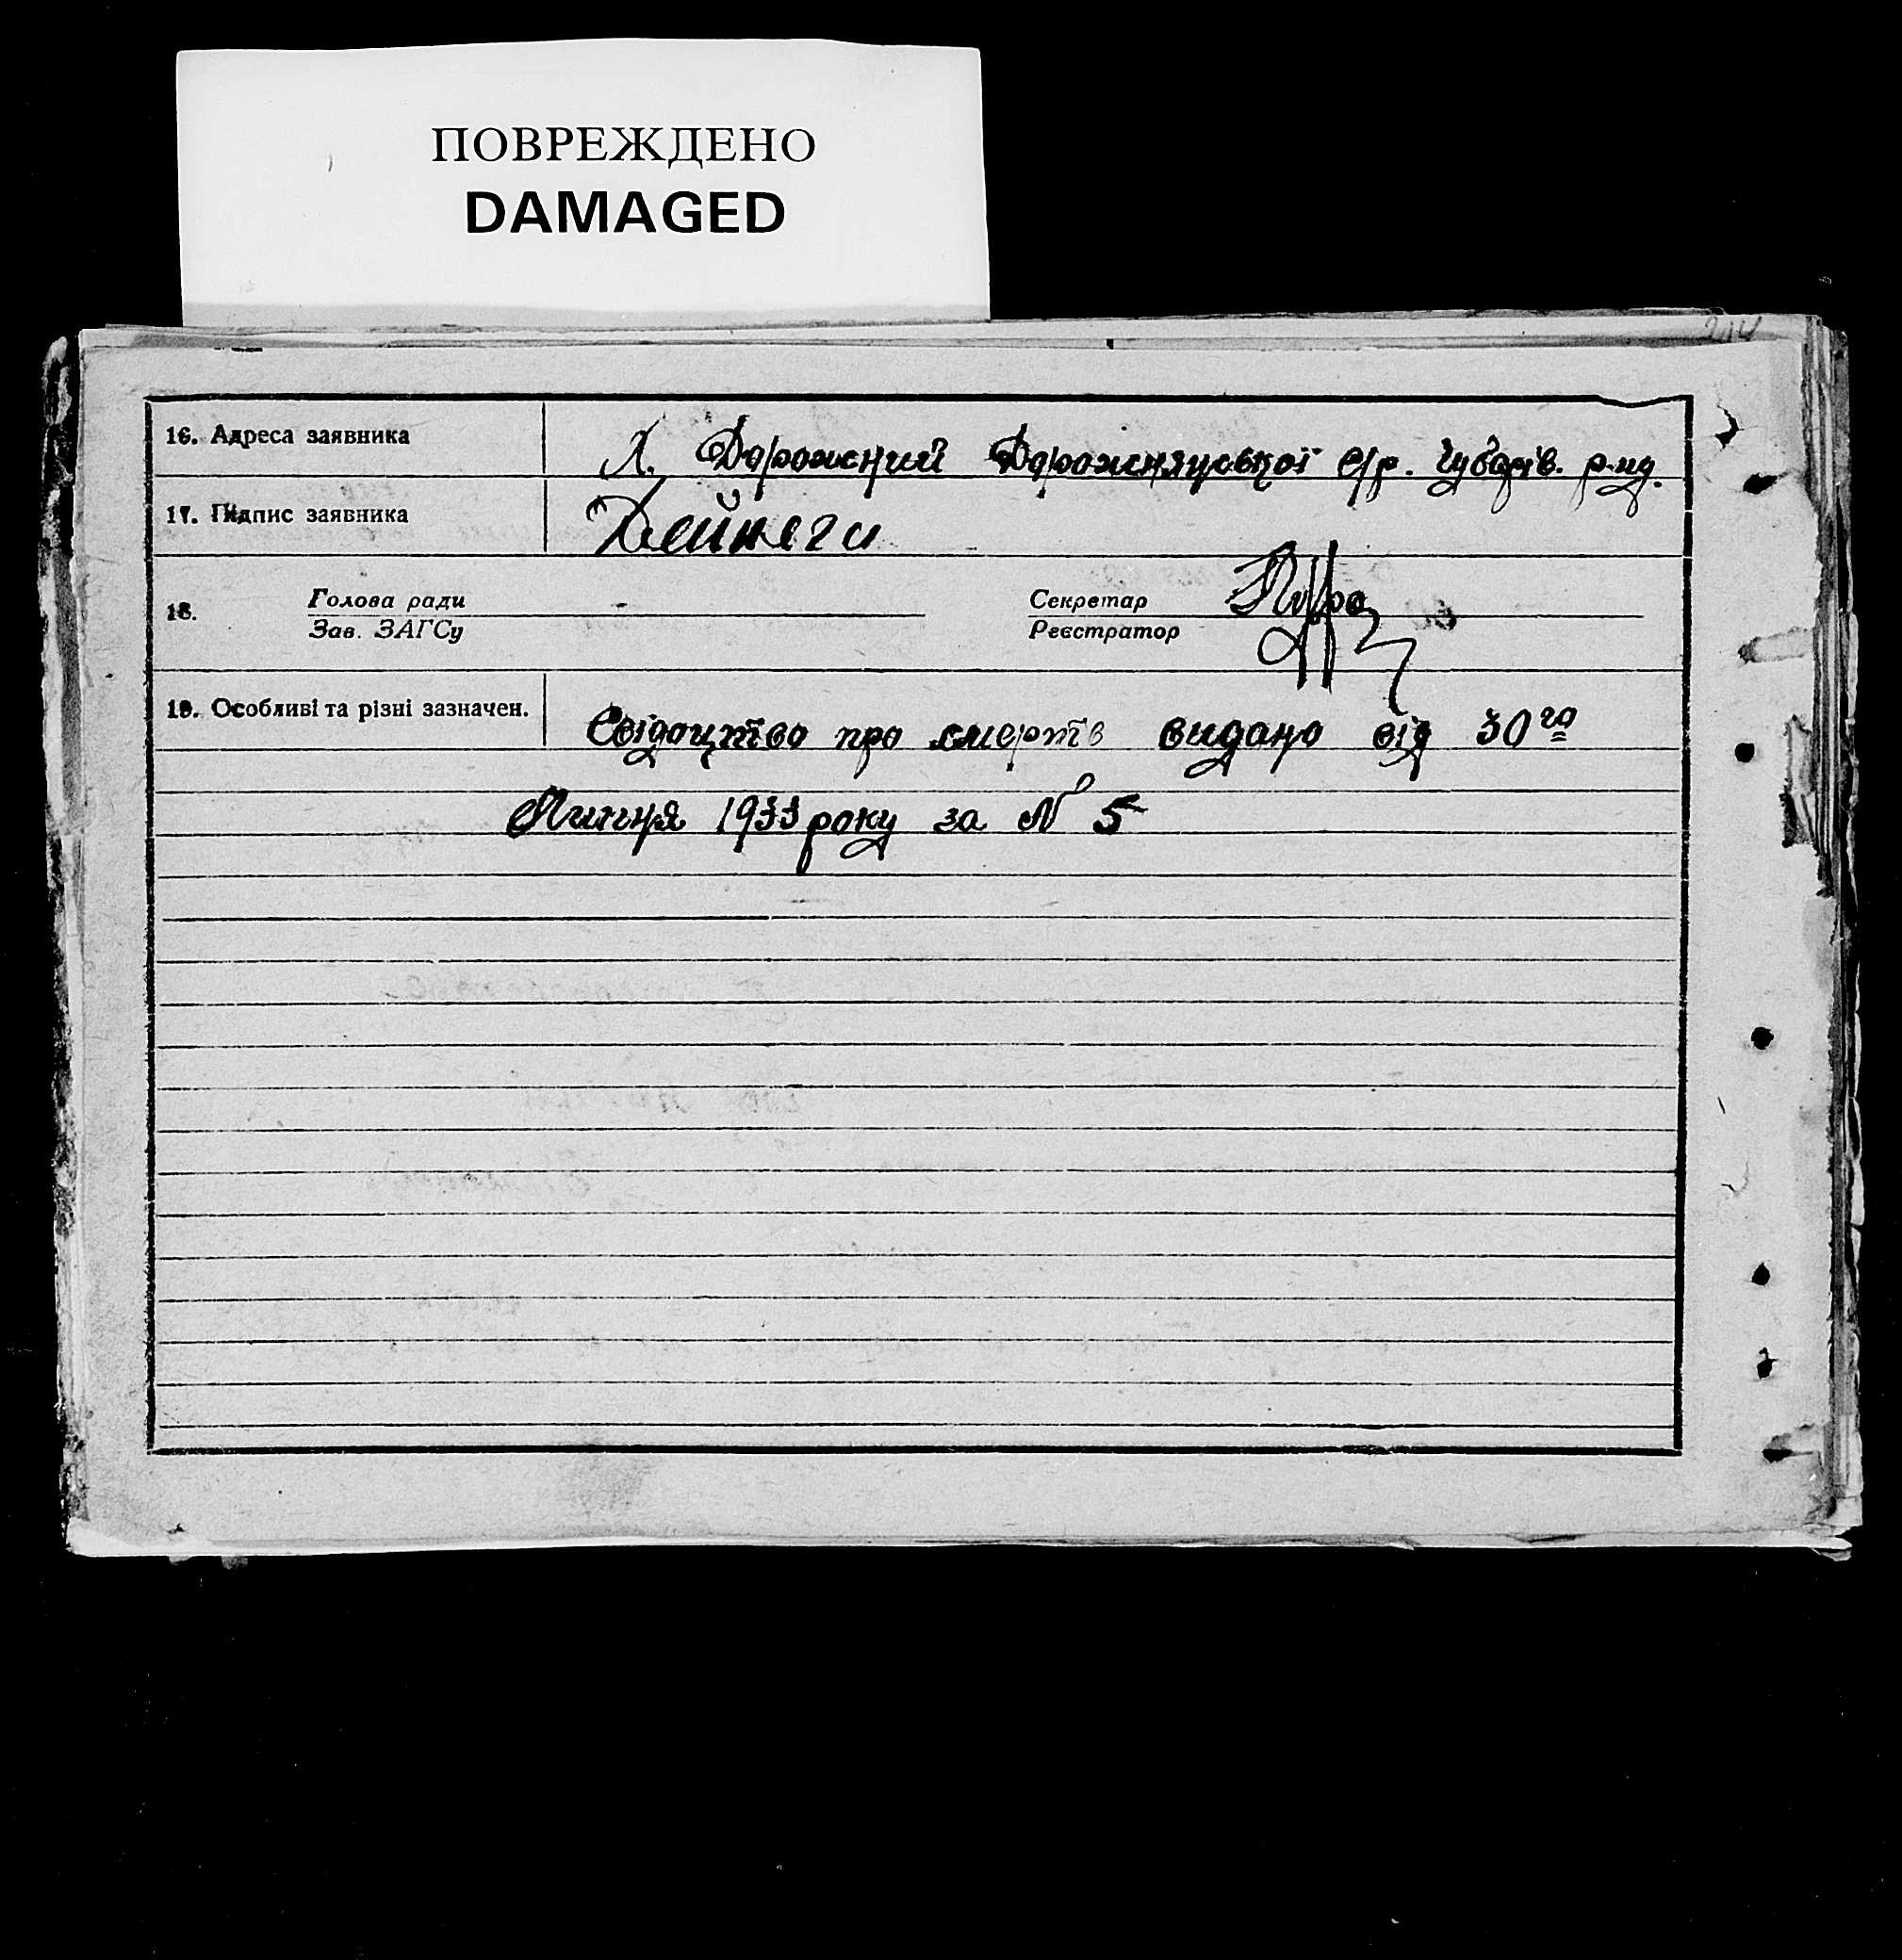 ПОВРЕЖДЕНО
DAMAGED
214
16. Адреса заявника Х. Дорожний Дорожнянської с/р. Чубарів. р-ну.
17. Підпис заявника Дейнеги
18. Голова ради Секретар
Зав. ЗАГСу Реєстратор
19. Особливі та різні зазначен. Свідоцтво про смерть видано від 30го
Липня 1933 року за № 5